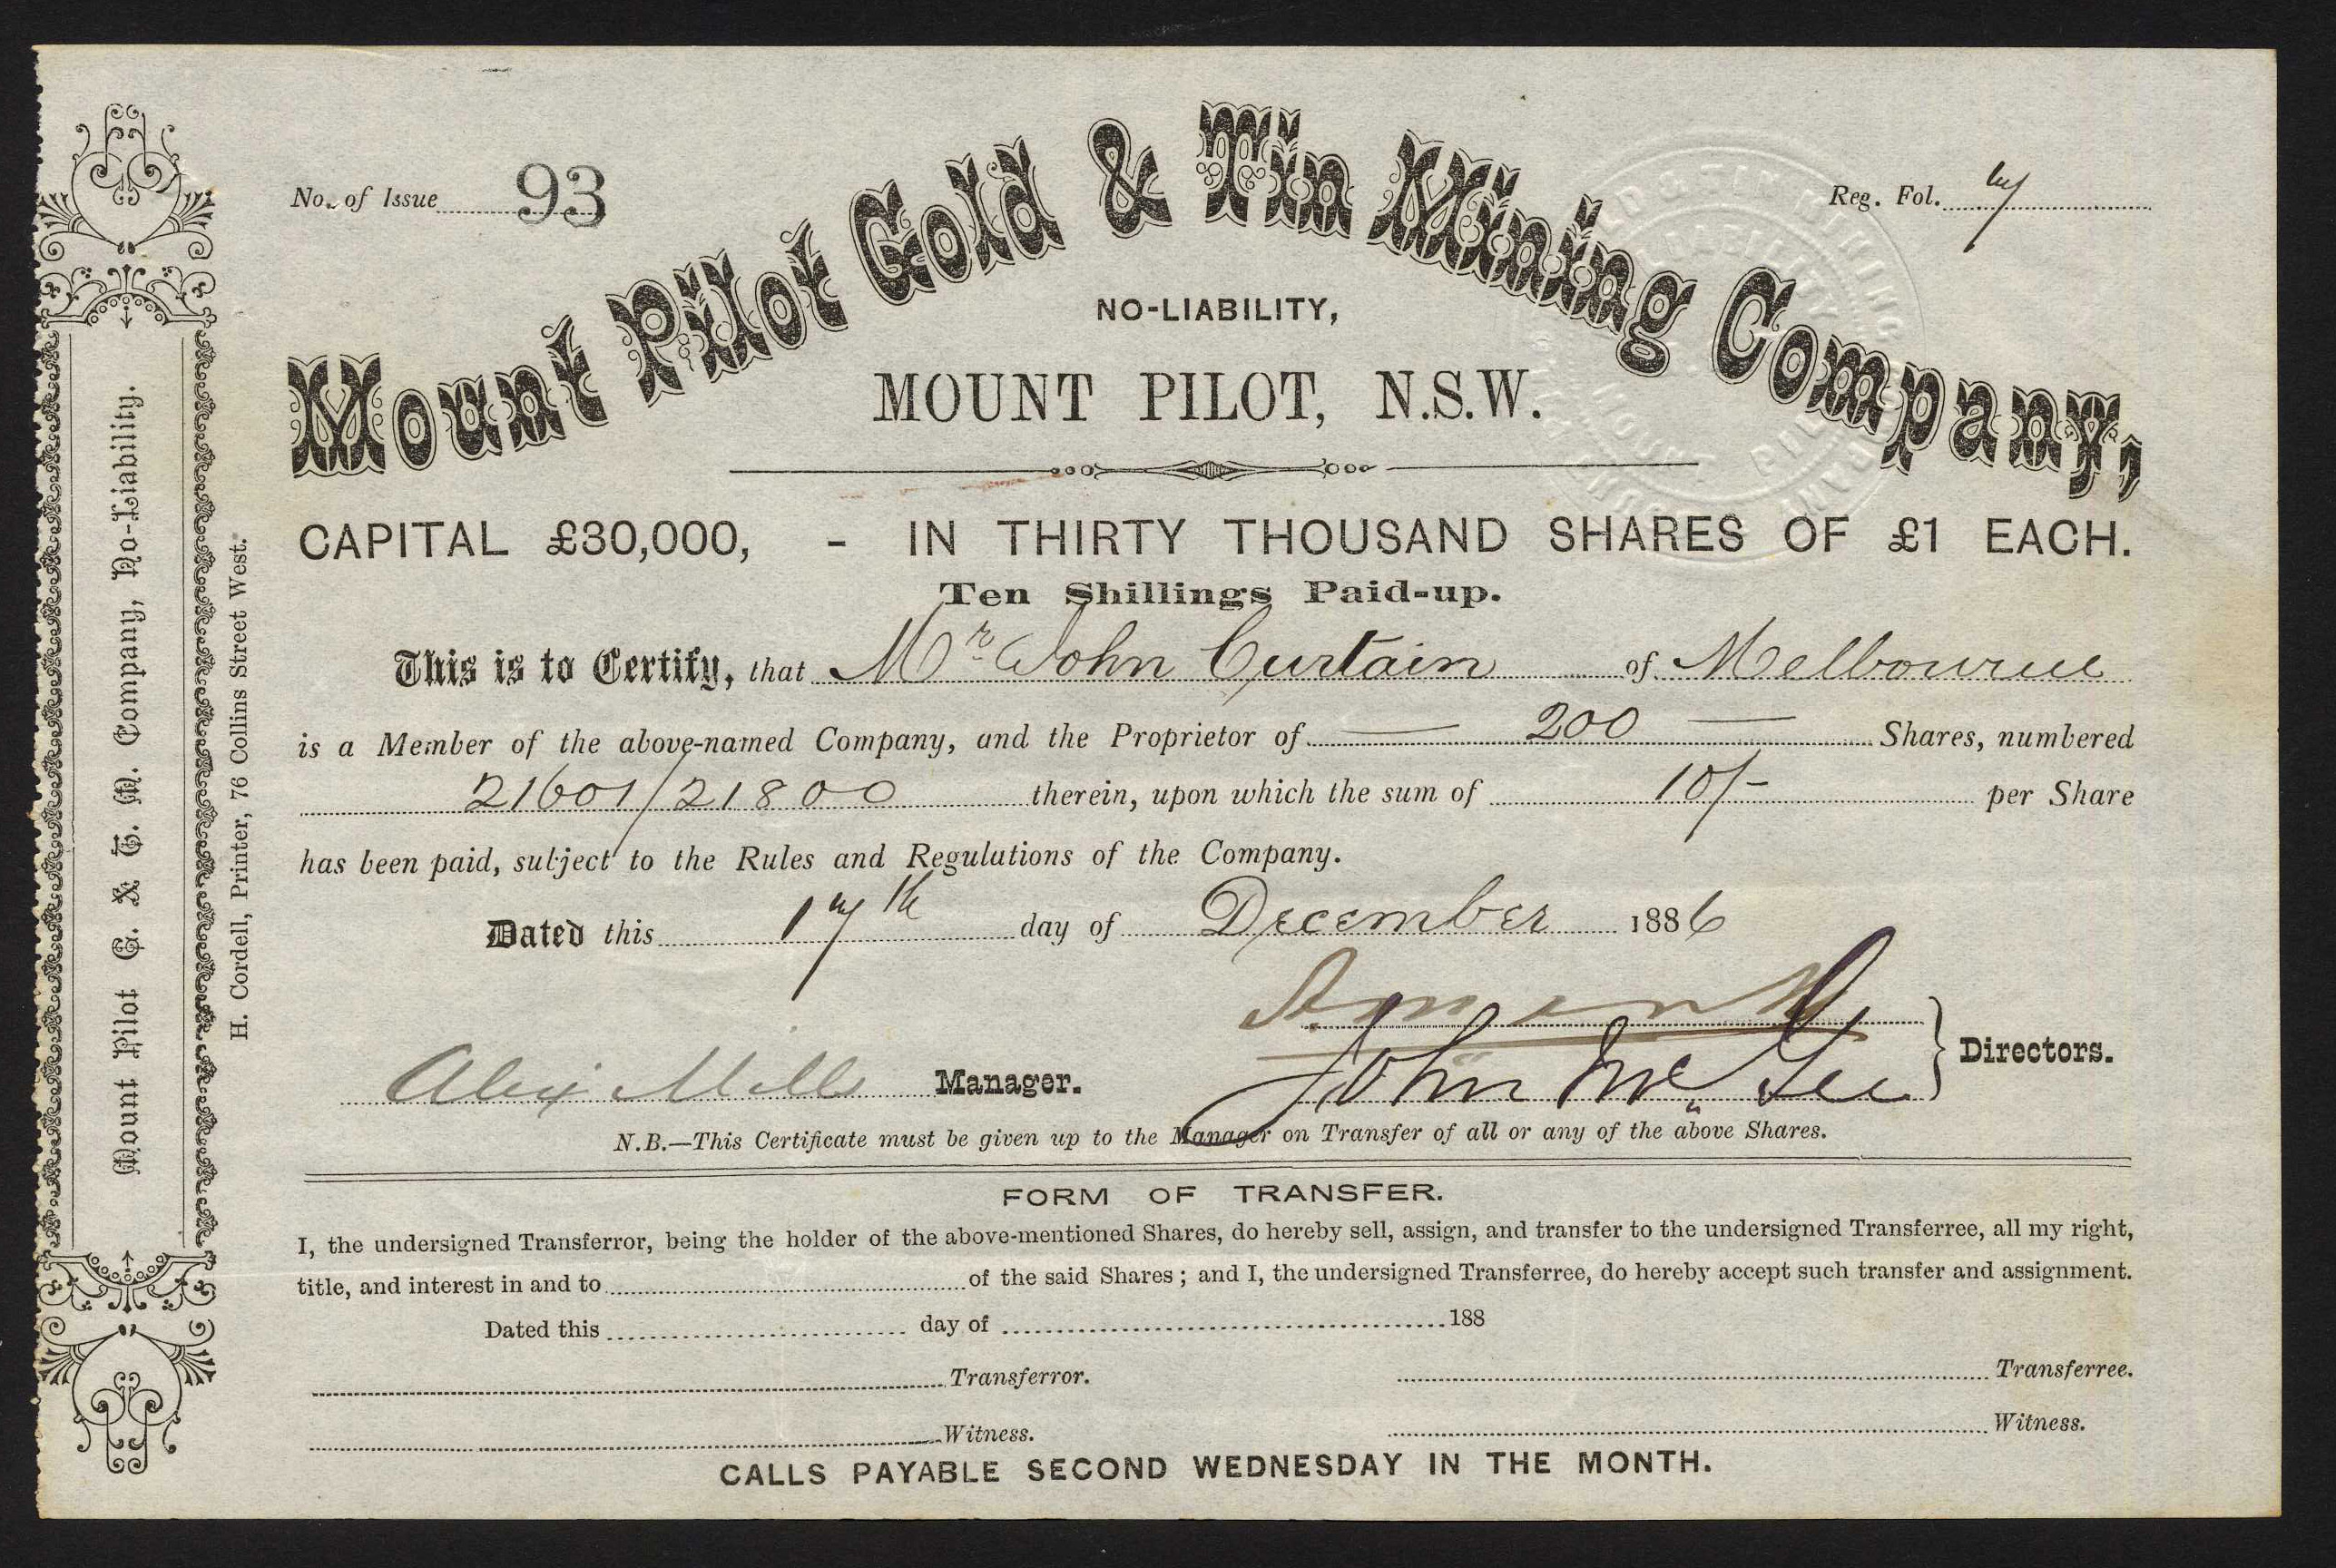 No. of Issue 93
Reg. Fol. 7
Mount Pilot Gold & Tin Mining Company,
NO-LIABILITY,
MOUNT PILOT, N.S.W.
CAPITAL £30,000, - IN THIRTY THOUSAND SHARES OF £1 EACH.
Ten Shillings Paid-up.
This is to Certify, that Mr John Curtain of Melbourne
is a Member of the above-named Company, and the Proprietor of — 200 — Shares, numbered
21601/21800 therein, upon which the sum of 10/- per Share
has been paid, subject to the Rules and Regulations of the Company.
Dated this 17th day of December 1886
John McGee
Directors.
Alex Mills Manager.
N.B.—This Certificate must be given up to the Manager on Transfer of all or any of the above Shares.
FORM OF TRANSFER.
I, the undersigned Transferror, being the holder of the above-mentioned Shares, do hereby sell, assign, and transfer to the undersigned Transferree, all my right,
title, and interest in and to of the said Shares; and I, the undersigned Transferree, do hereby accept such transfer and assignment.
Dated this day of 188
Transferror. Transferree.
Witness. Witness.
CALLS PAYABLE SECOND WEDNESDAY IN THE MONTH.
Mount Pilot G. & T. M. Company, No-Liability.
H. Cordell, Printer, 76 Collins Street West.